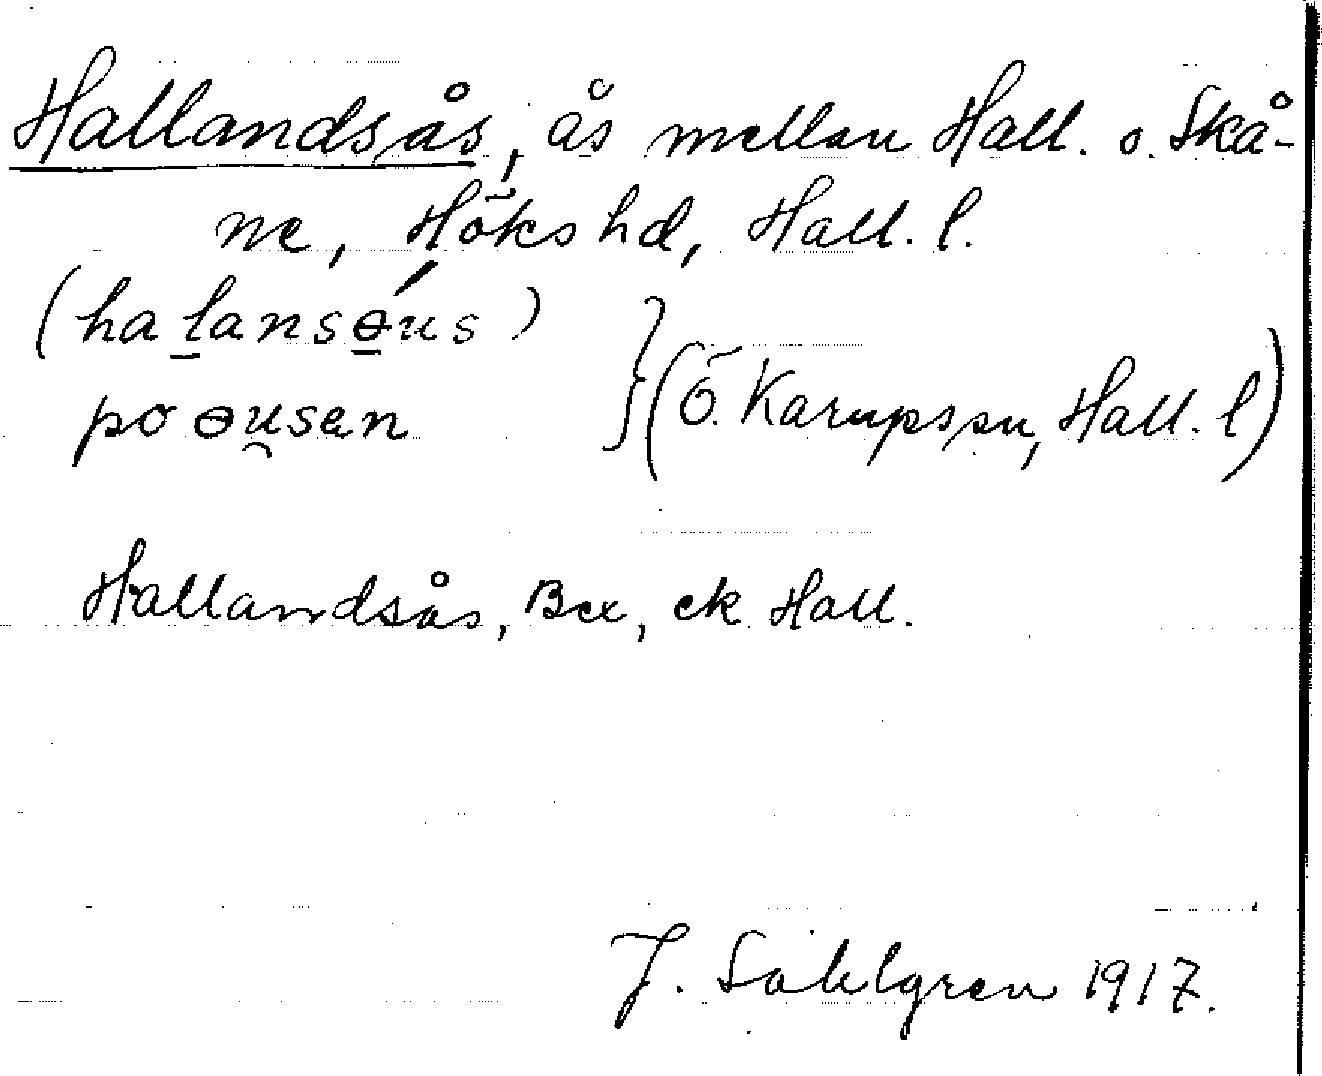 Hallandsås, ås mellan Hall. o. Skå-
ne, Höks hd, Hall. l.
(halansəús)
po əusen } (Ö. Karups sn, Hall. l)
Hallandsås, Bex, ek Hall.
J. Sahlgren 1917.